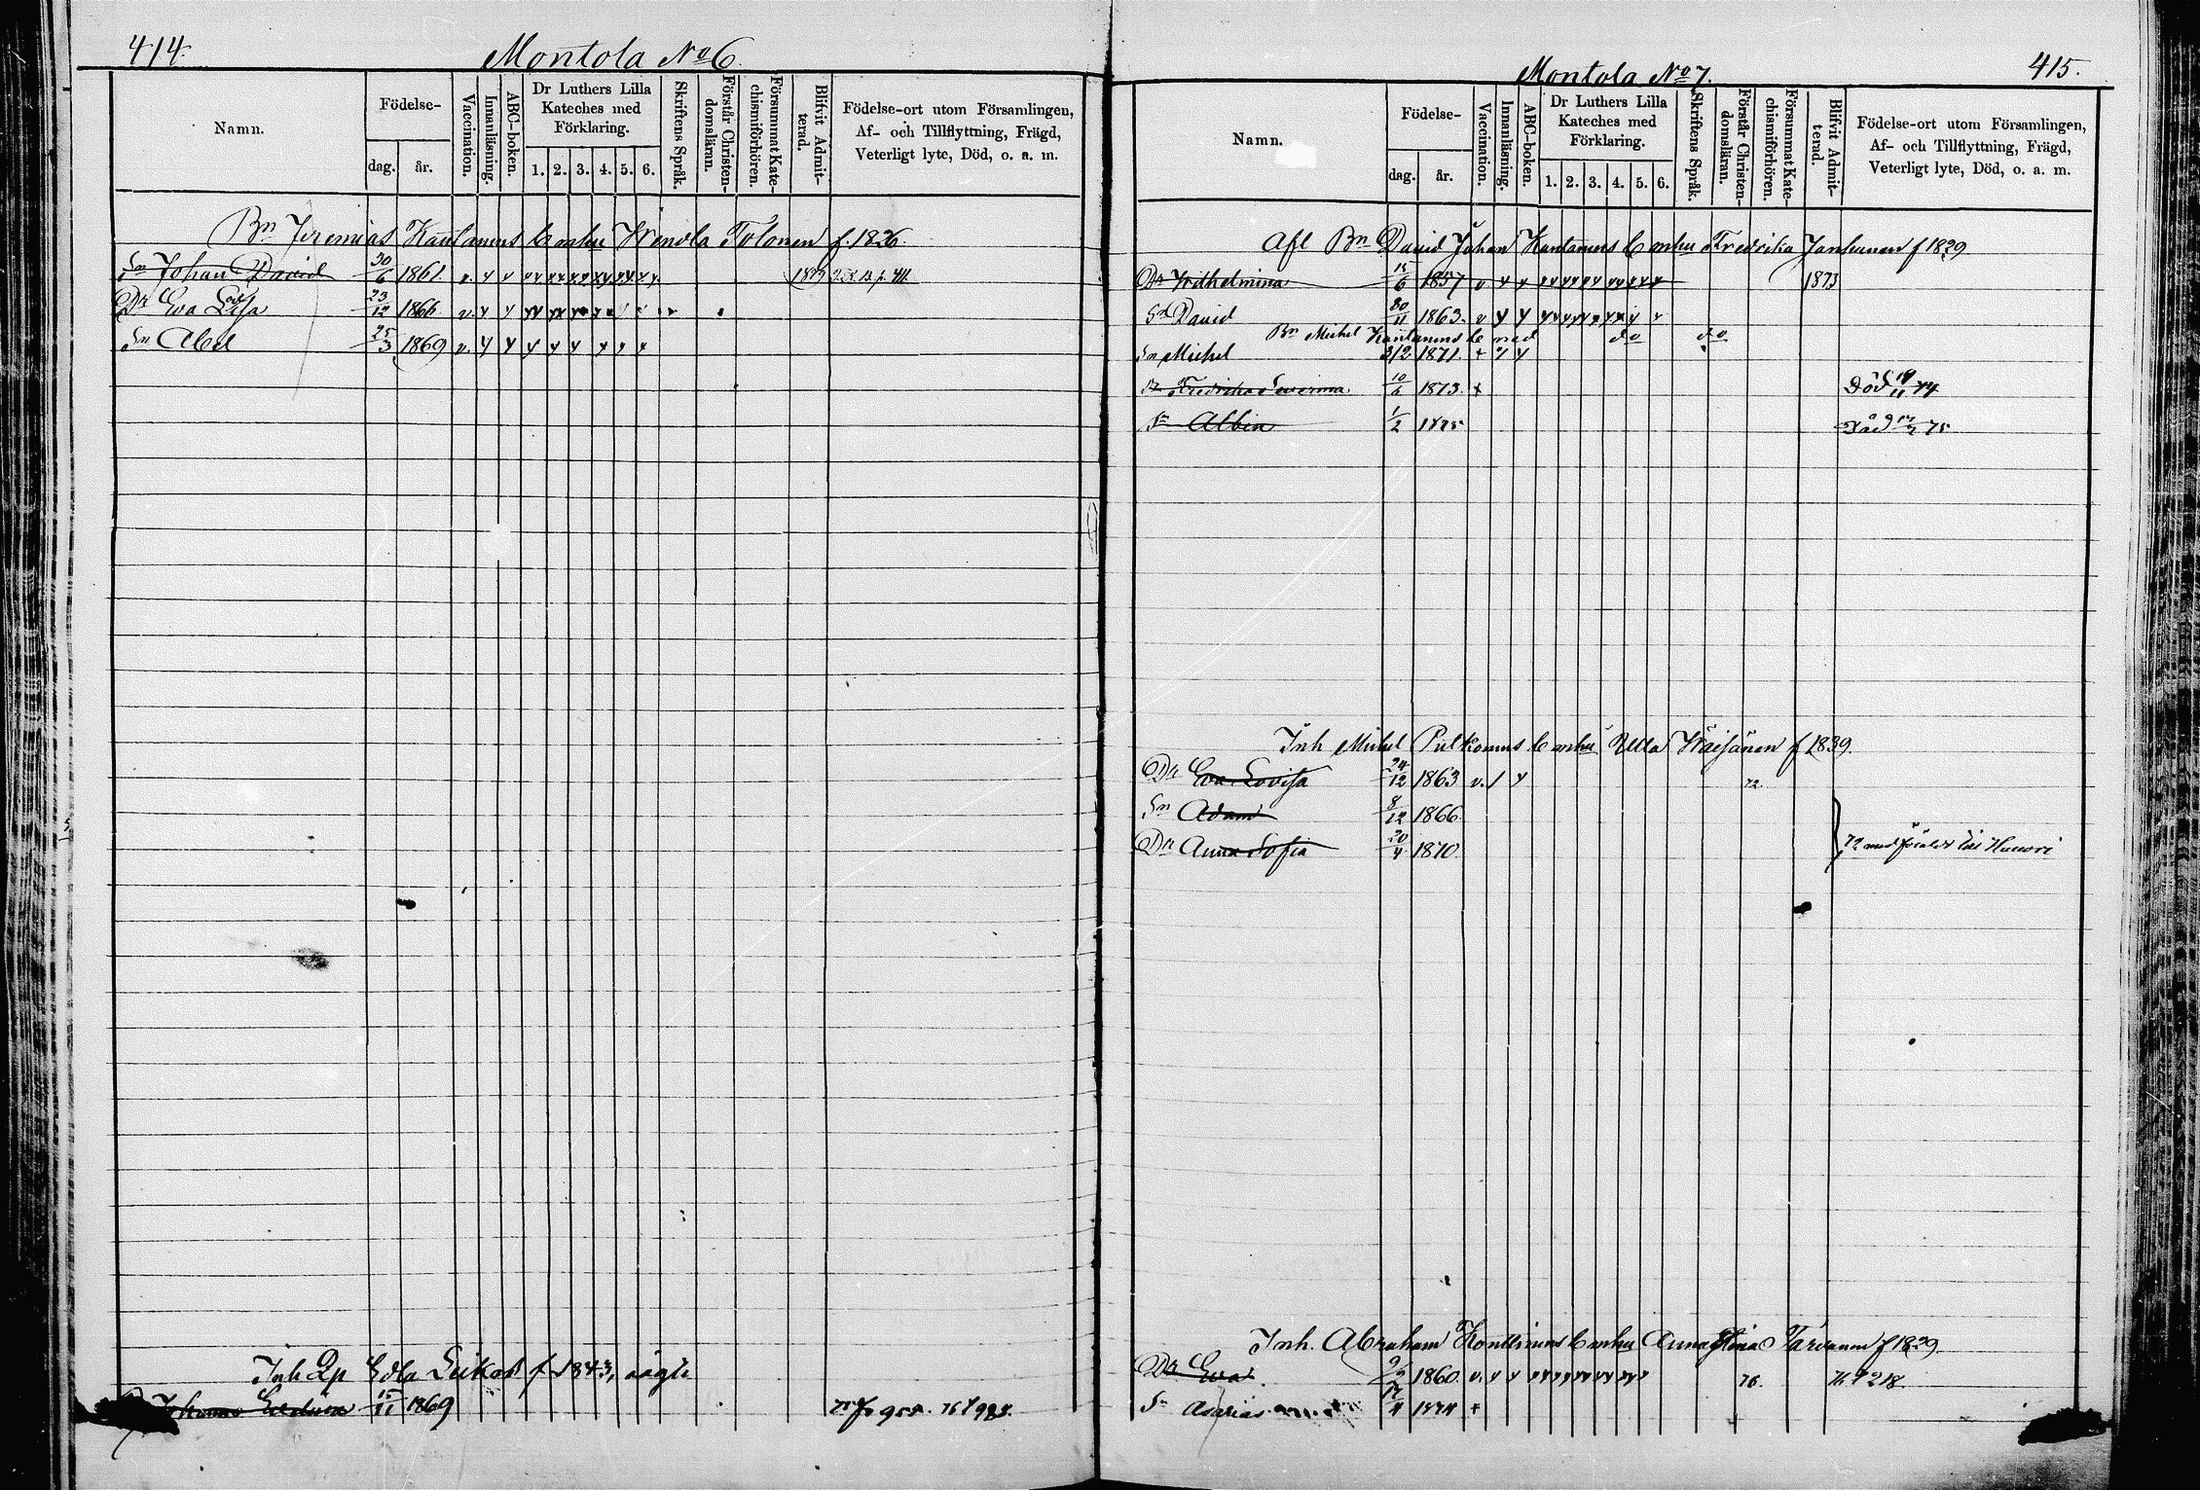 414.
Montola No 6.
Namn.
Födelse-
dag. år.
Vaccination.
Innanläsning.
ABC-boken.
Dr Luthers Lilla Kateches med Förklaring.
1. 2. 3. 4. 5. 6.
Skriftens Språk.
Förstår Christen-domsläran.
Försummat Kate-chismiförhören.
Blifvit Admit-terad.
Födelse-ort utom Församlingen,
Af- och Tillflyttning, Frägd,
Veterligt lyte, Död, o. a. m.
Bn Jeremias Kantanens b. m. hu Wendla Tolonen f. 1826.
Sn Johan David 30/6 1861 v.
Dr Eva Lisa 23/12 1866 v.
Sn Abel 25/3 1869 v.
Inh Qp Edla f. 1843,
15/11 1869
415.
Montola No 7.
Namn.
Födelse-
dag. år.
Vaccination.
Innanläsning.
ABC-boken.
Dr Luthers Lilla Kateches med Förklaring.
1. 2. 3. 4. 5. 6.
Skriftens Språk.
Förstår Christen-domsläran.
Försummat Kate-chismiförhören.
Blifvit Admit-terad.
Födelse-ort utom Församlingen,
Af- och Tillflyttning, Frägd,
Veterligt lyte, Död, o. a. m.
Afl Bn David Johan Kantanens b. m. hu Fredrika Janhunen f 1829
Dr Wilhelmina 15/6 1857 v 1873
Sn David 30/11 1863. v
Bn Michel Kantanens b. med do do
Sn Michel 3/2 1871. +
Dr Fredrika Severina 10/6 1873. + Död 19/11 74
Sn Albin 1/2 1875 Död 75
Inh Michel Pulkonens b. m. hu Ulla Wäisänen f 1839.
Dr Eva Lovisa 24/12 1863 v. 72
Sn Adam 8/12 1866
Dr Anna Sofia 20/4 1870. 72 med föräldr till
Inh. Abraham Konttinens b. m. hu Anna Stina f 1829.
Dr Eva 1860. v. 76. 76 f 218.
Sn Asarias 17/4 1874 +